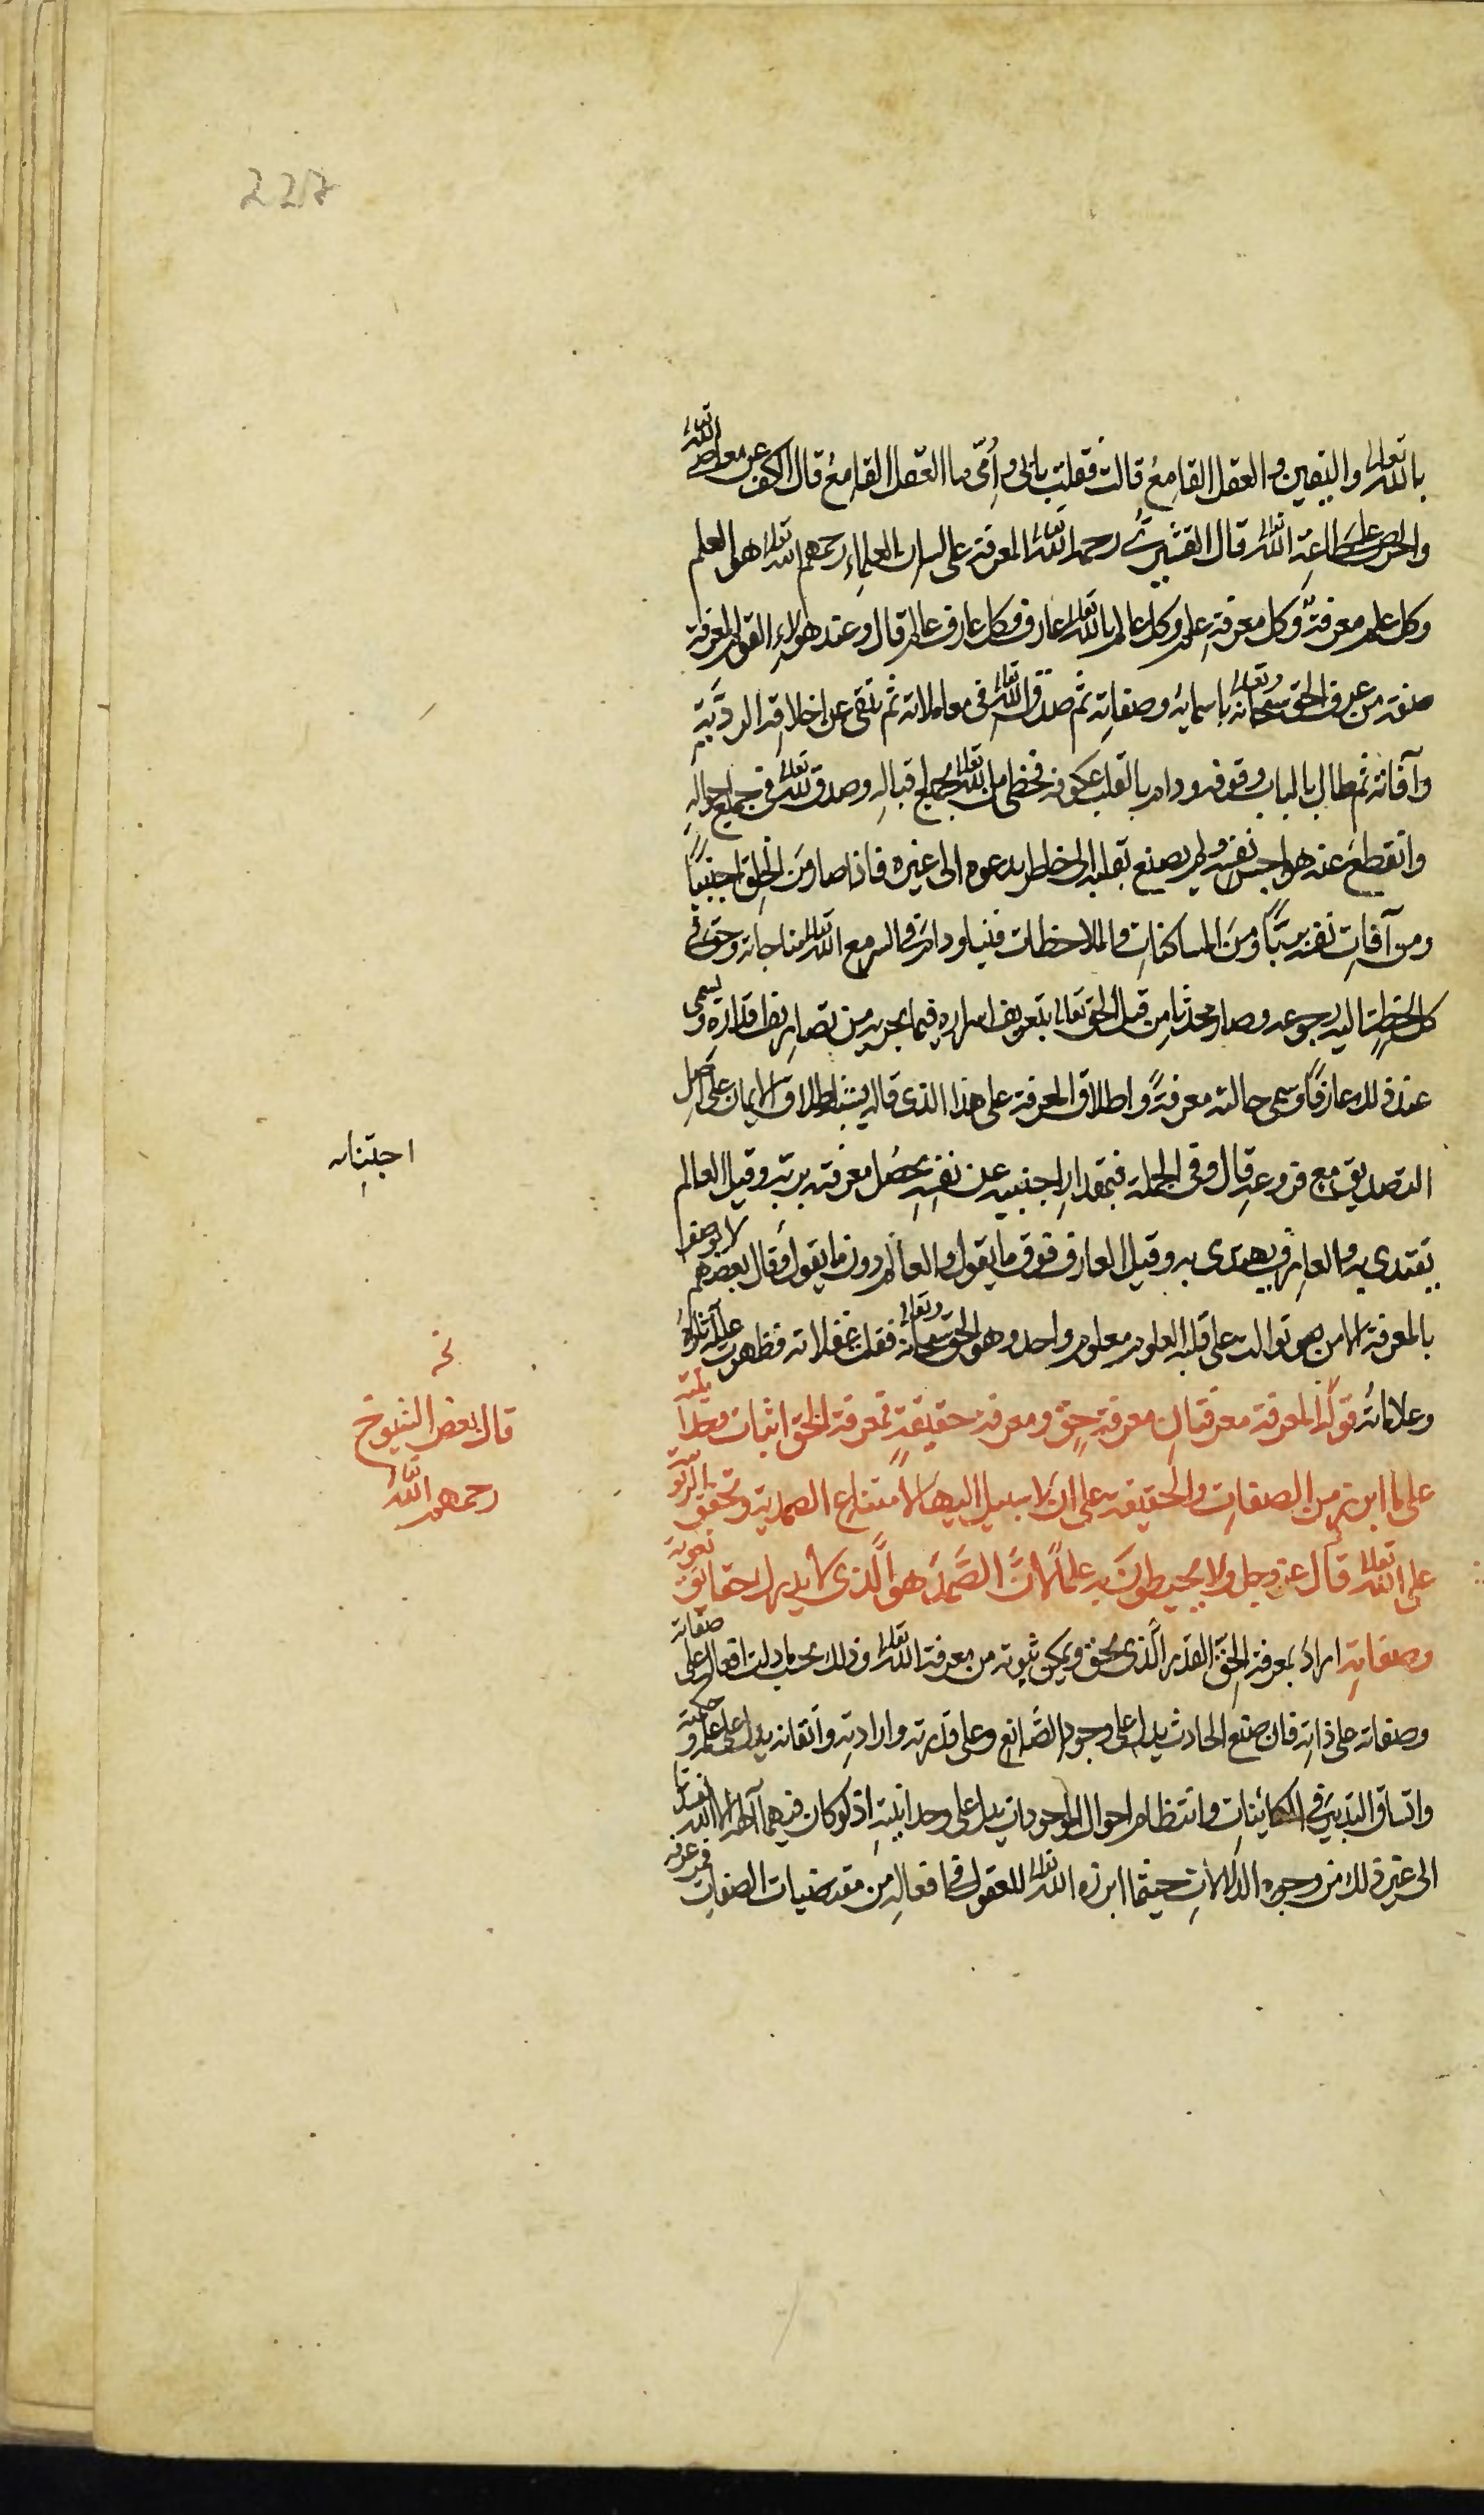 227
بالله تعالى واليقين والعقل القامع قالت فقلت بابى وامى ما العقل القامع قال الكف عن معاصى الله تعالى
والحرص على طاعة الله تعالى قال القشيرى رحمه الله تعالى المعرفة على لسان العلماء رحمهم الله تعالى هو العلم
وكل علم معرفة وكل معرفة علم وكل عالم بالله تعالى عارف وكل عارف عالم قال وعند هولاء القوم المعرفة
صفة من عرف الحق سبحانه وتعالى باسمايه وصفاته ثم صدق الله تعالى فى معاملاته ثم تنقى عن اخلاقه الردية
وآفاته ثم طال بالباب وقوفه ودام بالقلب عكوفه فحظى من الله تعالى بجميل اقباله وصدق الله تعالى فى جميع احواله
وانقطع عنه هواجس نفسه ولم يصغ بقلبه الى خاطر يدعوه الى غيره فاذا صار من الخلق اجنبيا
ومن آفات نفسه بريا ومن المساكنات والملاحظات نقيا ودام فى السر مع الله تعالى مناجاته وحق فى
كل لحظة اليه رجوعه وصار محدثا من قبل الحق تعالى بتعريف اسراره فيما يجريه من تصاريف اقداره ويسمى
عند ذلك عارفا وسمى حالته معرفة واطلاق المعرفة على هذا الذى قاله يشبه اطلاق الايمان على اصل
التصديق مع فروعه قال وفى الجملة فبمقدار اجنبيه عن نفسه تحصل معرفته بربه وقيل العالم
اجنبيته
يقتدى به والعارف يهتدى به وقيل العارف فوق ما يقول والعالم دون ما يقول وقال بعضهم لا يوصف
بالمعرفة الا من توالت على قلبه العلوم معلوم واحد وهو الحق سبحانه وتعالى فقلت غفلاته فظهرت عليه آثاره
وعلاماته قوله المعرفة معرفتان معرفة حق ومعرفة حقيقة فمعرفة الحق اثبات وحدانيته
نخ
قال بعض الشيوخ
رحمهم الله تعالى
على ما ابرز من الصفات والحقيقة على ان لا سبيل اليها لامتناع الصمدية وتحقق الربوبية
على الله تعالى قال عز وجل ولا يحيطون به علما لان الصمد هو الذى لا يدرك حقائق نعوته
وصفاته اراد بمعرفة الحق القدر الذى يحق ويمكن ثبوته من معرفة الله تعالى وذلك بحسب ما دلت افعاله على صفاته
وصفاته على ذاته فان صنع الحادث يدل على وجود الصانع وعلى قدرته وارادته واتقانه يدل على علمه وحكمته
واتساق التدبير فى الكائنات وانتظام احوال الموجودات يدل على وحدانيته اذ لو كان فيهما آلهة الا الله لفسدتا
الى غير ذلك من وجوه الدلالات حيثما ابرزه الله تعالى للعقول فى افعاله من مقتضيات الصفات فمن عرفه